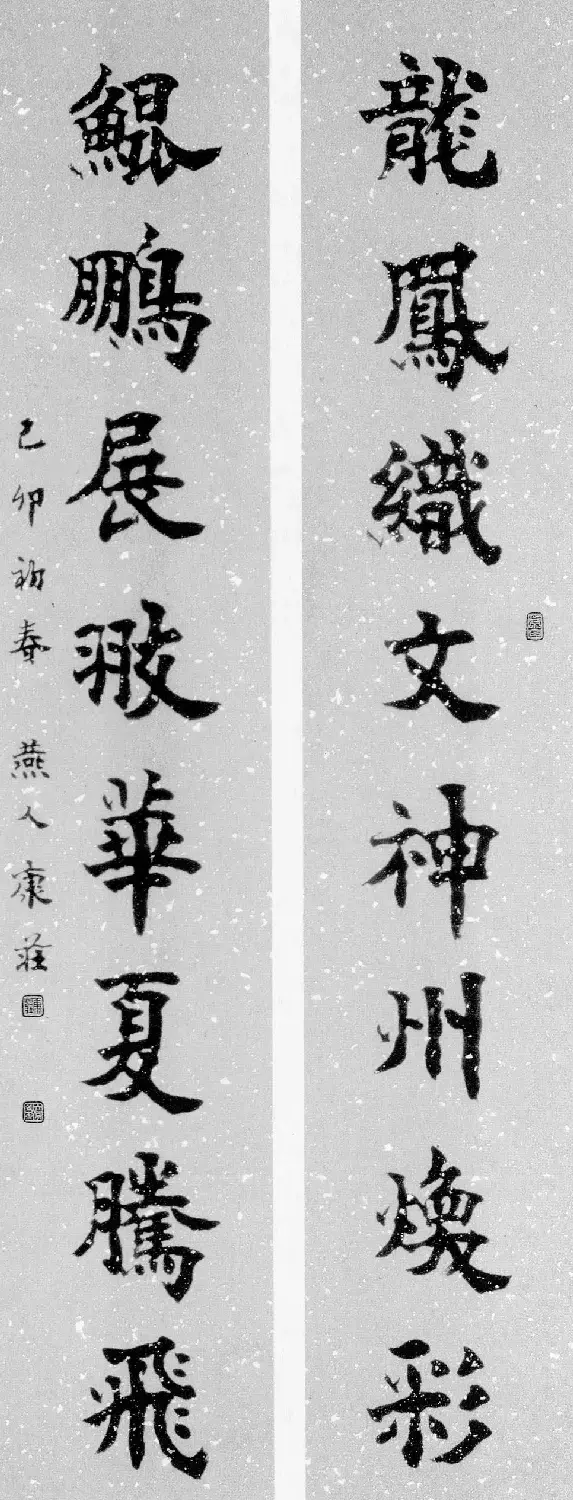 龍鳳織文神州煥彩
鯤鵬展翅華夏騰飛
己卯初春 燕人康莊